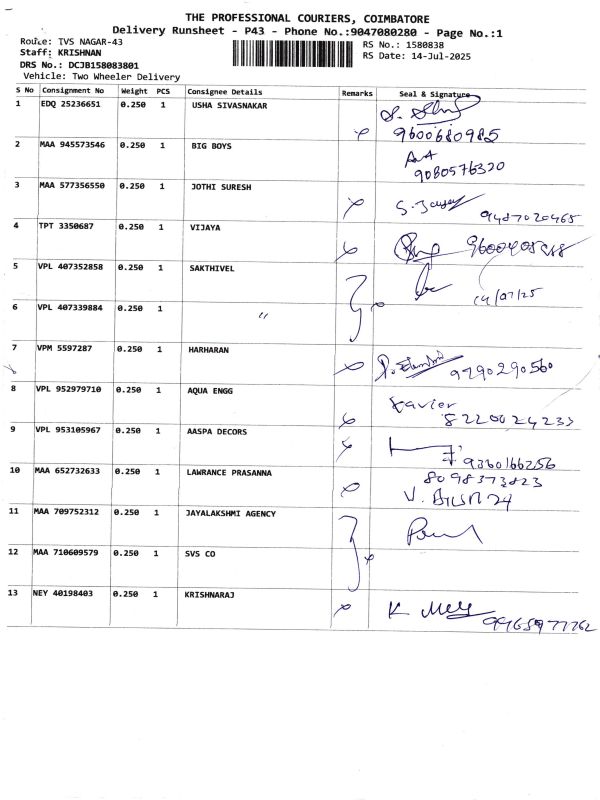 THE PROFESSIONAL COURIERS, COIMBATORE
Delivery Runsheet - P43 - Phone No.:9047080280 - Page No.:1
Route: TVS NAGAR-43
RS No.: 1580838
Staff: KRISHNAN
RS Date: 14-Jul-2025
DRS No.: DCJB158083801
Vehicle: Two Wheeler Delivery
S No Consignment No Weight PCS Consignee Details Remarks Seal & Signature
1 EDQ 25236651 0.250 1 USHA SIVASNAKAR
9600680985
2 MAA 945573546 0.250 1 BIG BOYS
9080576320
3 MAA 577356550 0.250 1 JOTHI SURESH
9487020465
4 TPT 3350687 0.250 1 VIJAYA
5 VPL 407352858 0.250 1 SAKTHIVEL
14/07/25
6 VPL 407339884 0.250 1 "
7 VPM 5597287 0.250 1 HARHARAN
9790290560
8 VPL 952979710 0.250 1 AQUA ENGG Xavier
8220024233
9 VPL 953105967 0.250 1 AASPA DECORS
9360166256
10 MAA 652732633 0.250 1 LAWRANCE PRASANNA 8098373823
11 MAA 709752312 0.250 1 JAYALAKSHMI AGENCY
12 MAA 710609579 0.250 1 SVS CO
13 NEY 40198403 0.250 1 KRISHNARAJ
9965977762